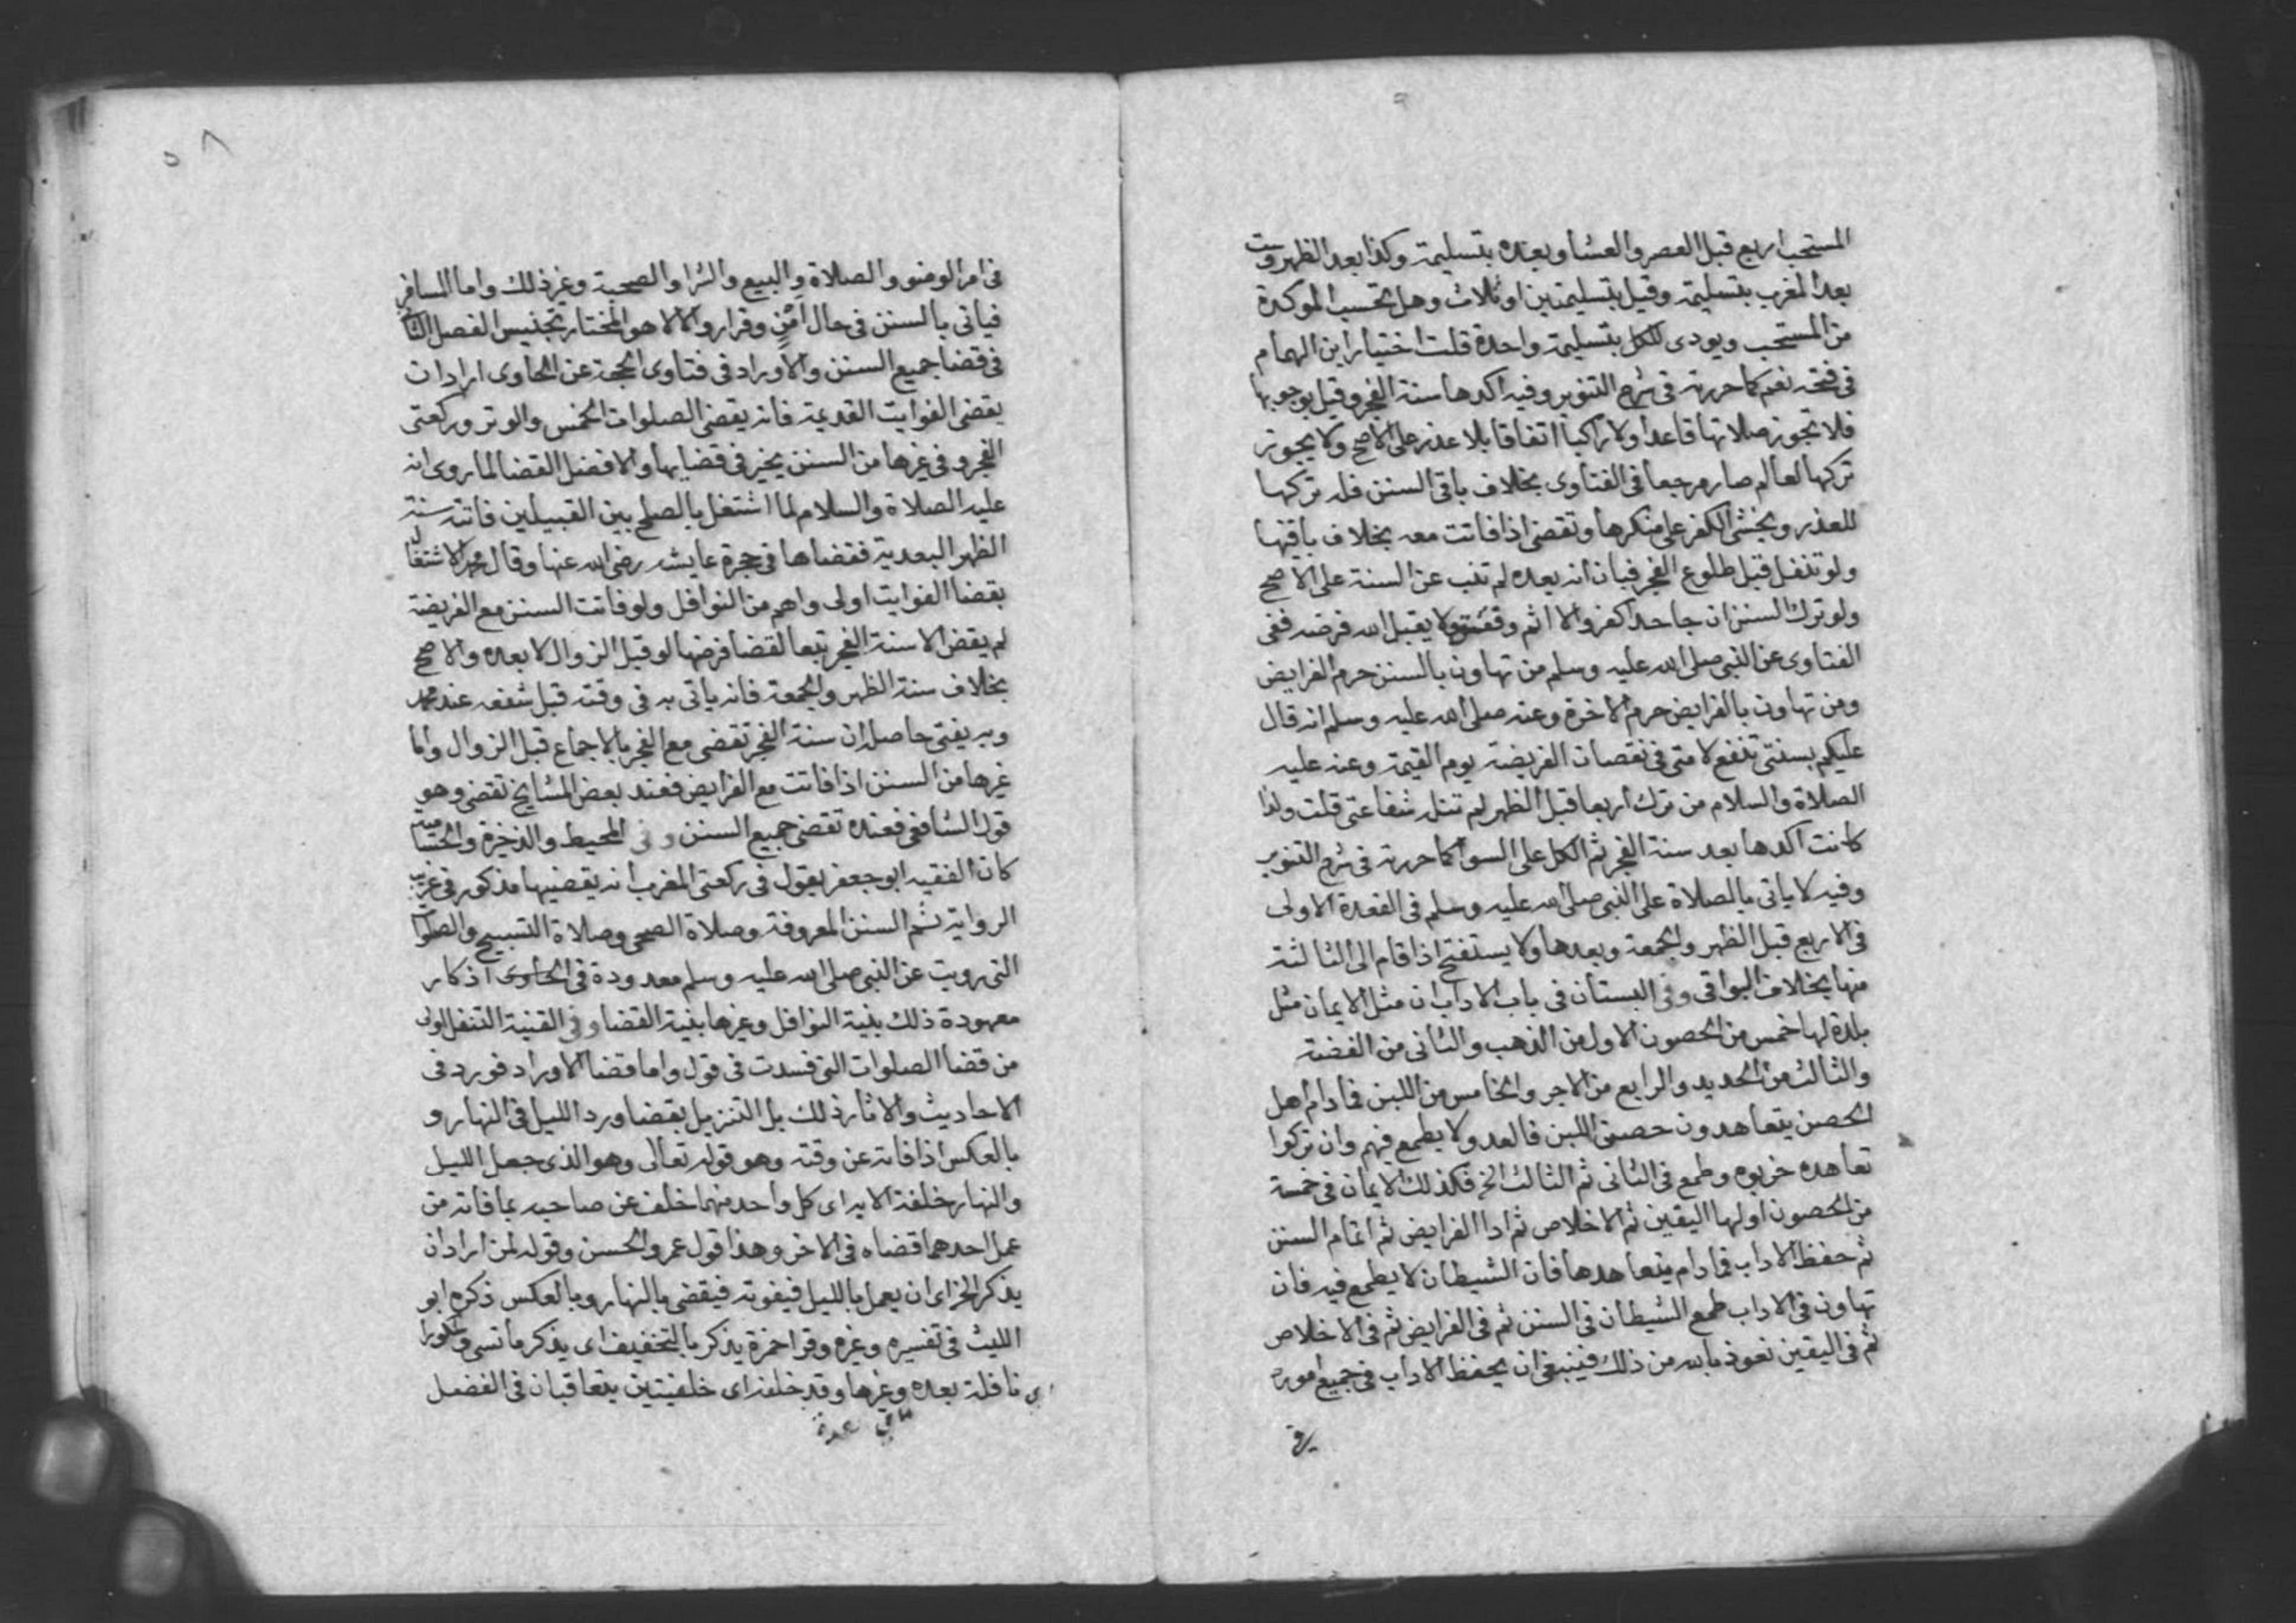 المستحب اربع قبل العصر والعشا وبعده بتسليمة وكذا بعد الظهر وست
بعد المغرب بتسليمة وقيل بتسليمتين او ثلاث وهل تحتسب الموكدة
من المستحب ويودى الكل بتسليمة واحدة قلت اختيار ابن الهمام
فى فتحه نعم كما حررته فى شرح التنوير وفيه اكدها سنة الفجر وقيل بوجوبها
فلا تجوز صلاتها قاعدا ولا راكبا اتفاقا بلا عذر على الاصح ولا يجوز
تركها لعالم صار مرجعا فى الفتاوى بخلاف باقى السنن فله تركها
للعذر ويخشى الكفر على منكرها وتقضى اذا فاتت معه بخلاف باقيها
ولو تنفل قبل طلوع الفجر فبان انه بعده لم تنب عن السنة على الاصح
ولو ترك السنن ان جاحدا كفر والا اثم ولا يقبل الله فرضه ففى
الفتاوى عن النبى صلى الله عليه وسلم من تهاون بالسنن حرم الفرايض
ومن تهاون بالفرايض حرم الاخرة وعنه صلى الله عليه وسلم انه قال
عليكم بسنتى تنفع لامتى فى نقصان الفريضة يوم القيمة وعنه عليه
الصلاة والسلام من ترك اربعا قبل الظهر لم تنله شفاعتى قلت ولذا
كانت اكدها بعد سنة الفجر ثم الكل على السوا كما حررته فى شرح التنوير
وفيه لا ياتى بالصلاة على النبى صلى الله عليه وسلم فى القعدة الاولى
فى الاربع قبل الظهر والجمعة وبعدها ولا يستفتح اذا قام الى الثالثة
منها بخلاف البواقى وفى البستان فى باب الاداب ان مثل الايمان مثل
بلدة لها خمس من الحصون الاول من الذهب والثانى من الفضة
والثالث من الحديد والرابع من الاجر والخامس من اللبن فمادام اهل
الحصن يتعاهدون حصن اللبن فالعدو لا يطمع فيهم وان تركوا
تعاهده خربوه وطمع فى الثانى ثم الثالث الخ فكذلك الايمان فى خمسة
من الحصون اولها اليقين ثم الاخلاص ثم ادا الفرايض ثم اتمام السنن
ثم حفظ الاداب فمادام يتعاهدها فان الشيطان لا يطمع فيه فان
تهاون فى الاداب طمع الشيطان فى السنن ثم فى الفرايض ثم فى الاخلاص
ثم فى اليقين نعوذ بالله من ذلك فينبغى ان يحفظ الاداب فى جميع اموره
فى امر الوضو والصلاة والبيع والشرا والصحبة وغير ذلك واما المسافر
فياتى بالسنن فى حال امن وقرار والا لا هو المختار تجنيس الفصل
فى قضا جميع السنن والاوراد فى فتاوى الحجة عن الحاوى اراد ان
يقضى الفوايت القديمة فانه يقضى الصلوات الخمس والوتر وركعتى
الفجر وفى غيرها من السنن يخير فى قضايها والافضل القضا لما روى انه
عليه الصلاة والسلام لما اشتغل بالصلح بين القبيلين فاتته سنة
الظهر البعدية فقضاها فى حجرة عايشه رضى الله عنها وقال محمد الاشتغال
بقضا الفوايت اولى واهم من النوافل ولو فاتت السنن مع الفريضة
لم يقض الا سنة الفجر تبعا لقضا فرضها لو قبل الزوال لا بعده والاصح
بخلاف سنة الظهر والجمعة فانه ياتى به فى وقته قبل شفعه عند محمد
وبه يفتى حاصله ان سنة الفجر تقضى مع الفجر بالاجماع قبل الزوال واما
غيرها من السنن اذا فاتت مع الفرايض فعند بعض المشايخ تقضى وهو
قول الشافعى فعنده تقضى جميع السنن وفى المحيط والذخيرة
كان الفقيه ابو جعفر يقول فى ركعتى المغرب انه يقضيها مذكور فى غريب
الرواية ثم السنن المعروفة وصلاة الضحى وصلاة التسبيح والصلوات
التى رويت عن النبى صلى الله عليه وسلم معدودة فى الحاوى اذكار
معهودة ذلك بنية النوافل وغيرها بنية القضا وفى القنية التنفل اولى
من قضا الصلوات التى فسدت فى قول واما قضا الاوراد فورد فى
الاحاديث والاثار ذلك بل التنزيل بقضا ورد الليل فى النهار و
بالعكس اذا فاته عن وقته وهو قوله تعالى وهو الذى جعل الليل
والنهار خلفة الاية اى كل واحد منهما خلف عن صاحبه بما فاته من
عمل احدهما قضاه فى الاخر وهذا قول عمر والحسن وقوله لمن اراد ان
يذكر الخ اى ان يعمل بالليل فيفوته فيقضى بالنهار وبالعكس ذكره ابو
الليث فى تفسيره وغيره وقرا حمزة يذكر بالتخفيف اى يذكر ما نسى
نافلة بعده وغيرها وقد خلفة اى خلفيتين يتعاقبان فى الفضل